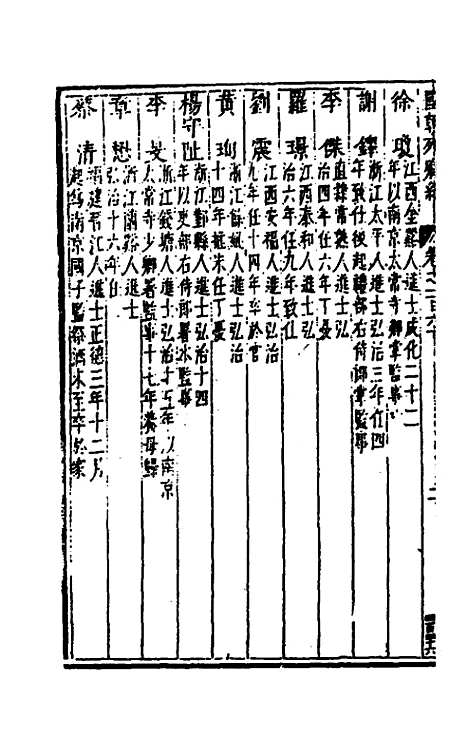 徐瓊 江西金谿人進士成化二十二
年以南京太常寺卿掌監事
謝鐸 浙江太平人進士弘治三年任四
年致仕後起禮部右侍郎掌監事
李傑 直隸常熟人進士弘
治四年任六年丁憂
羅璟 江西泰和人進士弘
治六年任九年致仕
劉震 江西安福人進士弘治
九年任十四年卒於官
黃珣 浙江餘姚人進士弘治
十四年起未任丁憂
楊守阯 浙江鄞縣人進士弘治十四
年以吏部右侍郎署本監事
李旻 浙江錢塘人進士弘治十五年以南京
太常寺少卿署監事十七年養母歸
章懋 浙江蘭谿人進士
弘治十六年任
蔡清 福建晉江人進士正德三年十二月
起為南京國子監祭酒未至卒於家